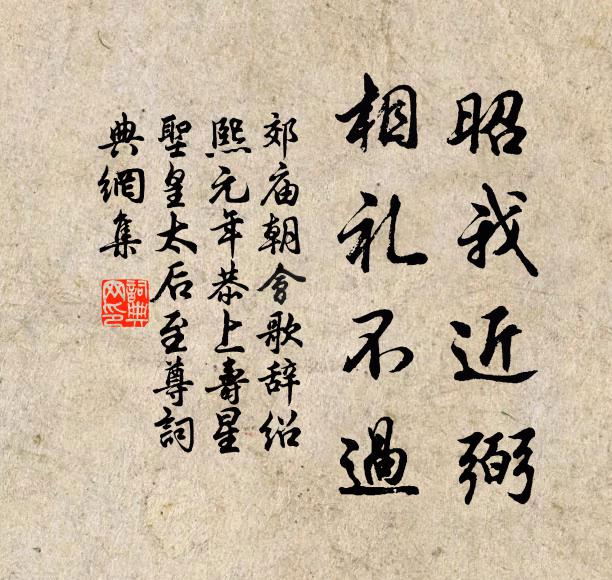 昭我近弼
相礼不過
郊庙朝會歌辞绍
熙元年恭上壽星
聖皇太后至尊詞
典網集
詞典網印